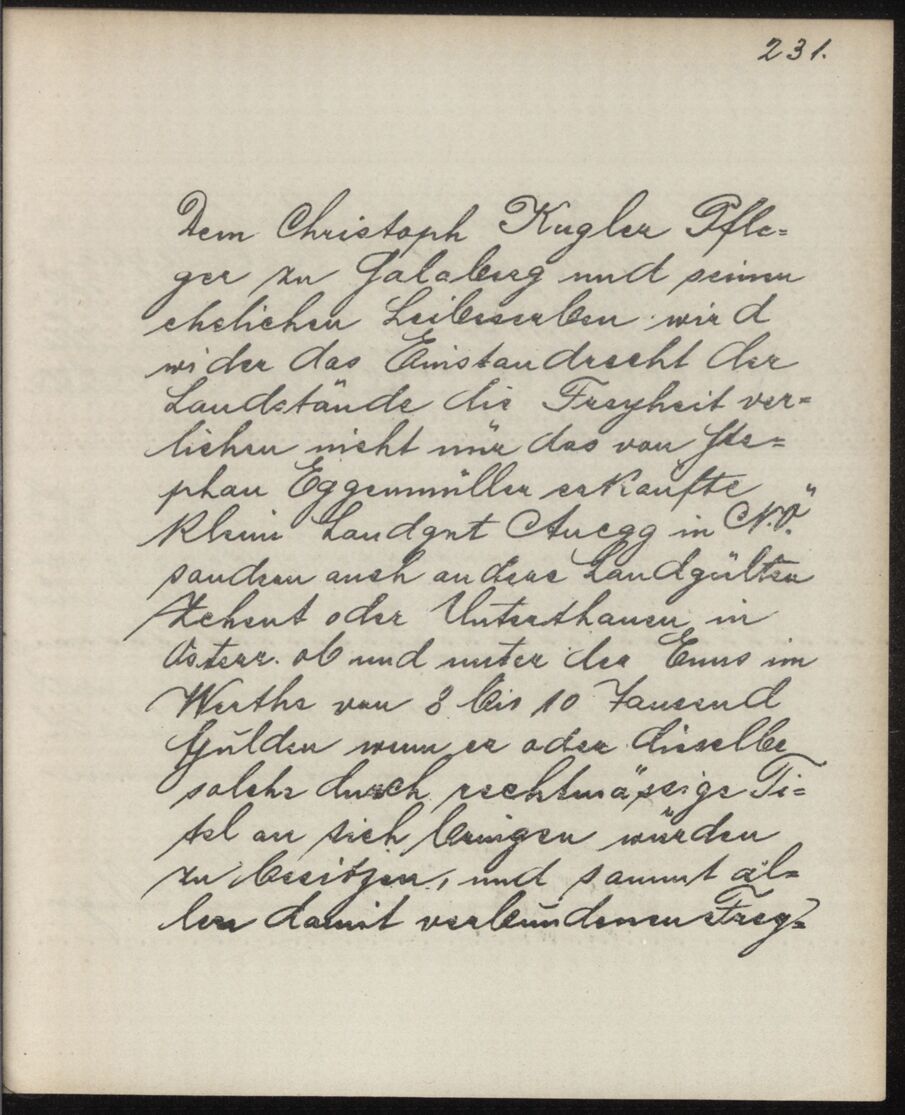 231.
Dem Christoph Kugler Pfle=
ger zu Galaberg und seinen
ehelichen Leibeserben wird
wider das Einstandrecht der
Landstände die Freyheit ver=
liehen nicht nur das von Ste=
phan Eggenmüller erkaufte
klein Landgut Auegg in N.Ö.
sondern auch andere Landgülten
Zehent oder Unterthanen in
Österr. ob und unter der Enns im
Werthe von 8 bis 10 Tausend
Gulden wenn er oder dieselbe
solche durch rechtmässige Ti=
tel an sich bringen würden
zu besitzen, und sammt al=
len damit verbundenen Frey=